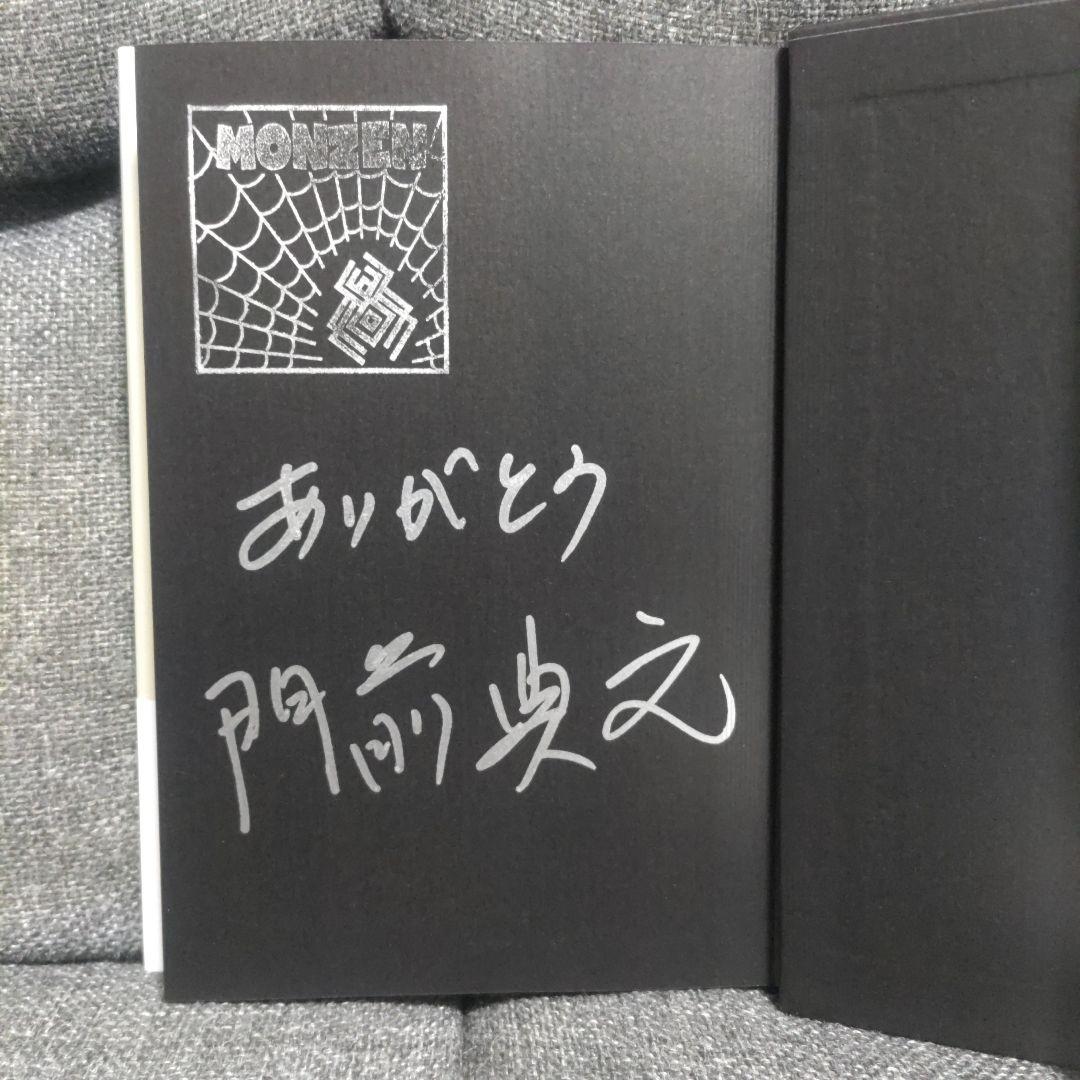 MONZEN
ありがとう
門前典文